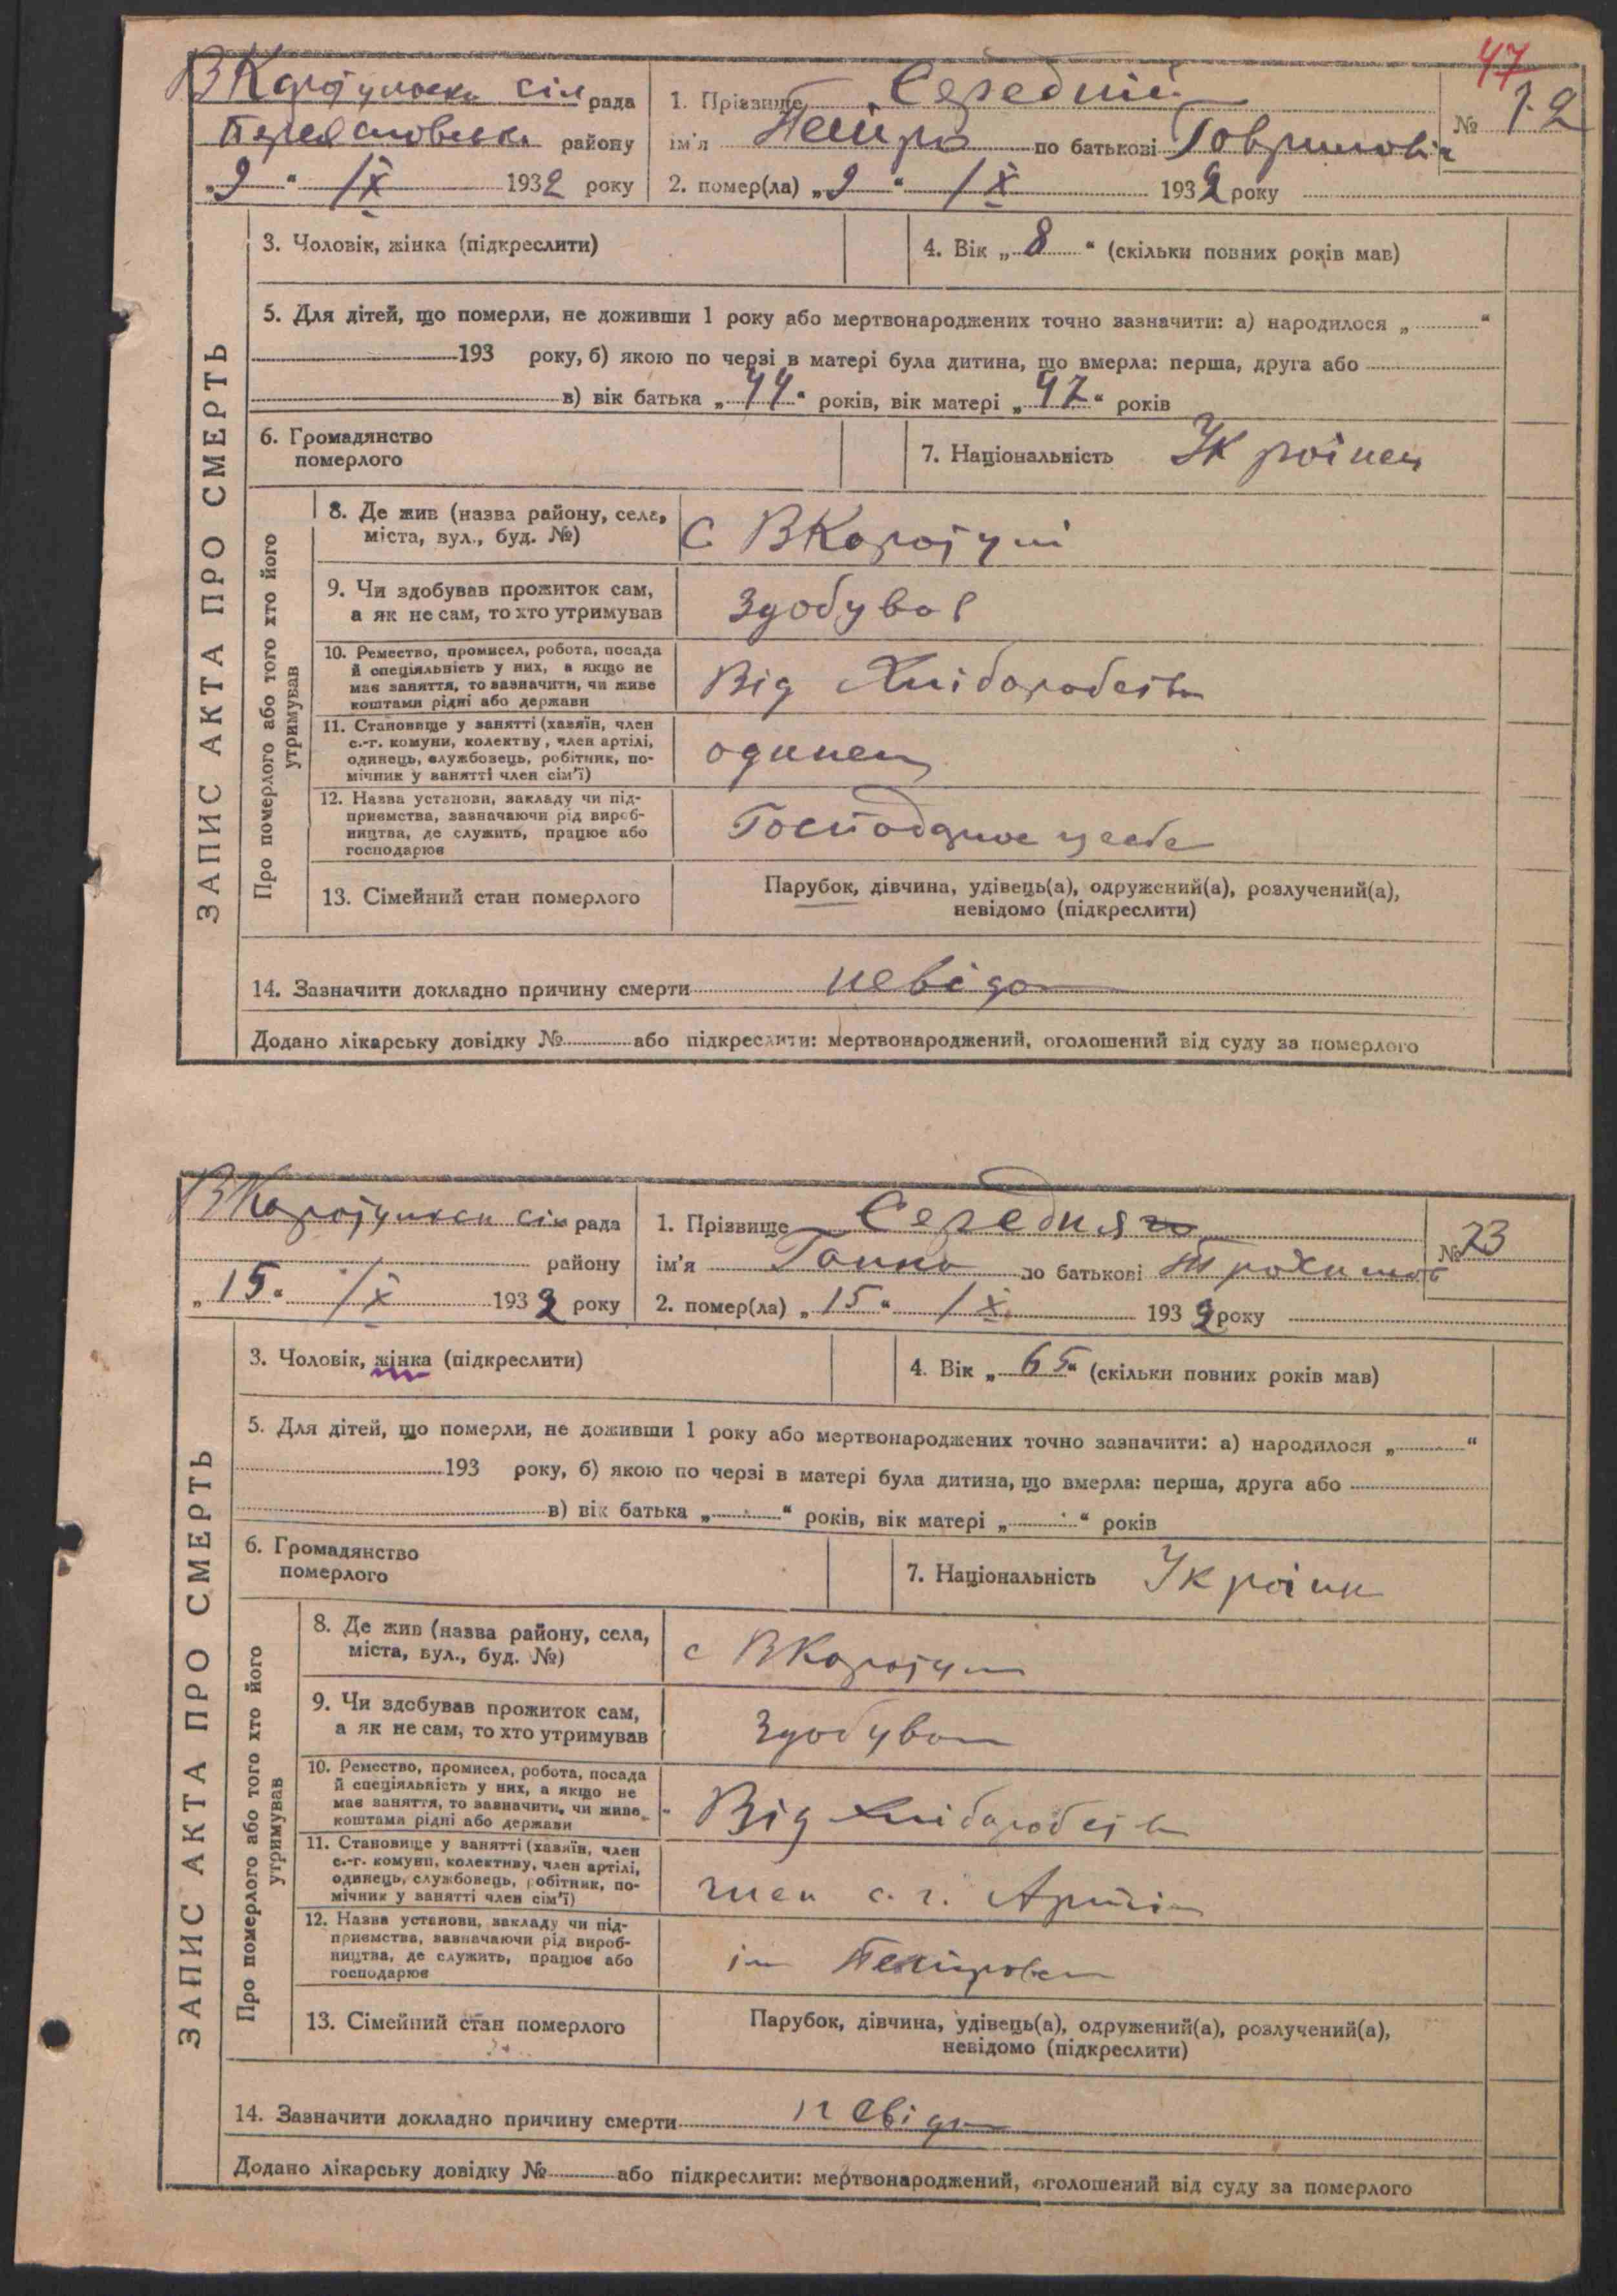 47
ВКаратульска сіл рада
Переяславська району
„9“ IX 1932 року
1. Прізвище Середній
ім'я Петро по батькові Гаврилович
2. помер(ла) „9“ IX 1932 року
№ 12
ЗАПИС АКТА ПРО СМЕРТЬ
3. Чоловік, жінка (підкреслити)
4. Вік „8“ (скільки повних років мав)
5. Для дітей, що померли, не доживши 1 року або мертвонароджених точно зазначити: а) народилося „ “
193 року, б) якою по черзі в матері була дитина, що вмерла: перша, друга або
в) вік батька „44“ років, вік матері „42“ років
6. Громадянство
померлого
7. Національність Українец
Про померлого або того хто його
утримував
8. Де жив (назва району, села,
міста, вул., буд. №)
с ВКаратулі
9. Чи здобував прожиток сам,
а як не сам, то хто утримував
Здобував
10. Ремество, промисел, робота, посада
й спеціяльність у них, а якщо не
має заняття, то зазначити, чи живе
коштами рідні або держави
Від Хліборобства
11. Становище у занятті (хазяїн, член
с.-г. комуни, колектву, член артілі,
одинець, службовець, робітник, по-
мічник у занятті член сім'ї)
одинец
12. Назва установи, закладу чи під-
приемства, зазначаючи рід вироб-
ництва, де служить, працює або
господарює
Господарює у себе
13. Сімейний стан померлого
Парубок, дівчина, удівець(а), одружений(а), розлучений(а),
невідомо (підкреслити)
14. Зазначити докладно причину смерти невідом
Додано лікарську довідку № або підкреслити: мертвонароджений, оголошений від суду за померлого
ВКаратульськ сіл рада
району
„15“ IX 1932 року
1. Прізвище Середня
ім'я Ганна по батькові Трохимов
2. помер(ла) „15“ IX 1932 року
№ 23
ЗАПИС АКТА ПРО СМЕРТЬ
3. Чоловік, жінка (підкреслити)
4. Вік „65“ (скільки повних років мав)
5. Для дітей, що померли, не доживши 1 року або мертвонароджених точно зазначити: а) народилося „ “
193 року, б) якою по черзі в матері була дитина, що вмерла: перша, друга або
в) вік батька „ “ років, вік матері „ “ років
6. Громадянство
померлого
7. Національність Українк
Про померлого або того хто його
утримував
8. Де жив (назва району, села,
міста, вул., буд. №)
с ВКаратул
9. Чи здобував прожиток сам,
а як не сам, то хто утримував
Здобувал
10. Ремество, промисел, робота, посада
й спеціяльність у них, а якщо не
має заняття, то зазначити, чи живе
коштами рідні або держави
Від Хліборобств
11. Становище у занятті (хазяїн, член
с.-г. комуни, колективу, член артілі,
одинець, службовець, робітник, по-
мічник у занятті член сім'ї)
член с. г. Артілі
12. Назва установи, закладу чи під-
приемства, зазначаючи рід вироб-
ництва, де служить, працює або
господарює
ім Петровськ
13. Сімейний стан померлого
Парубок, дівчина, удівець(а), одружений(а), розлучений(а),
невідомо (підкреслити)
14. Зазначити докладно причину смерти невідом
Додано лікарську довідку № або підкреслити: мертвонароджений, оголошений від суду за померлого